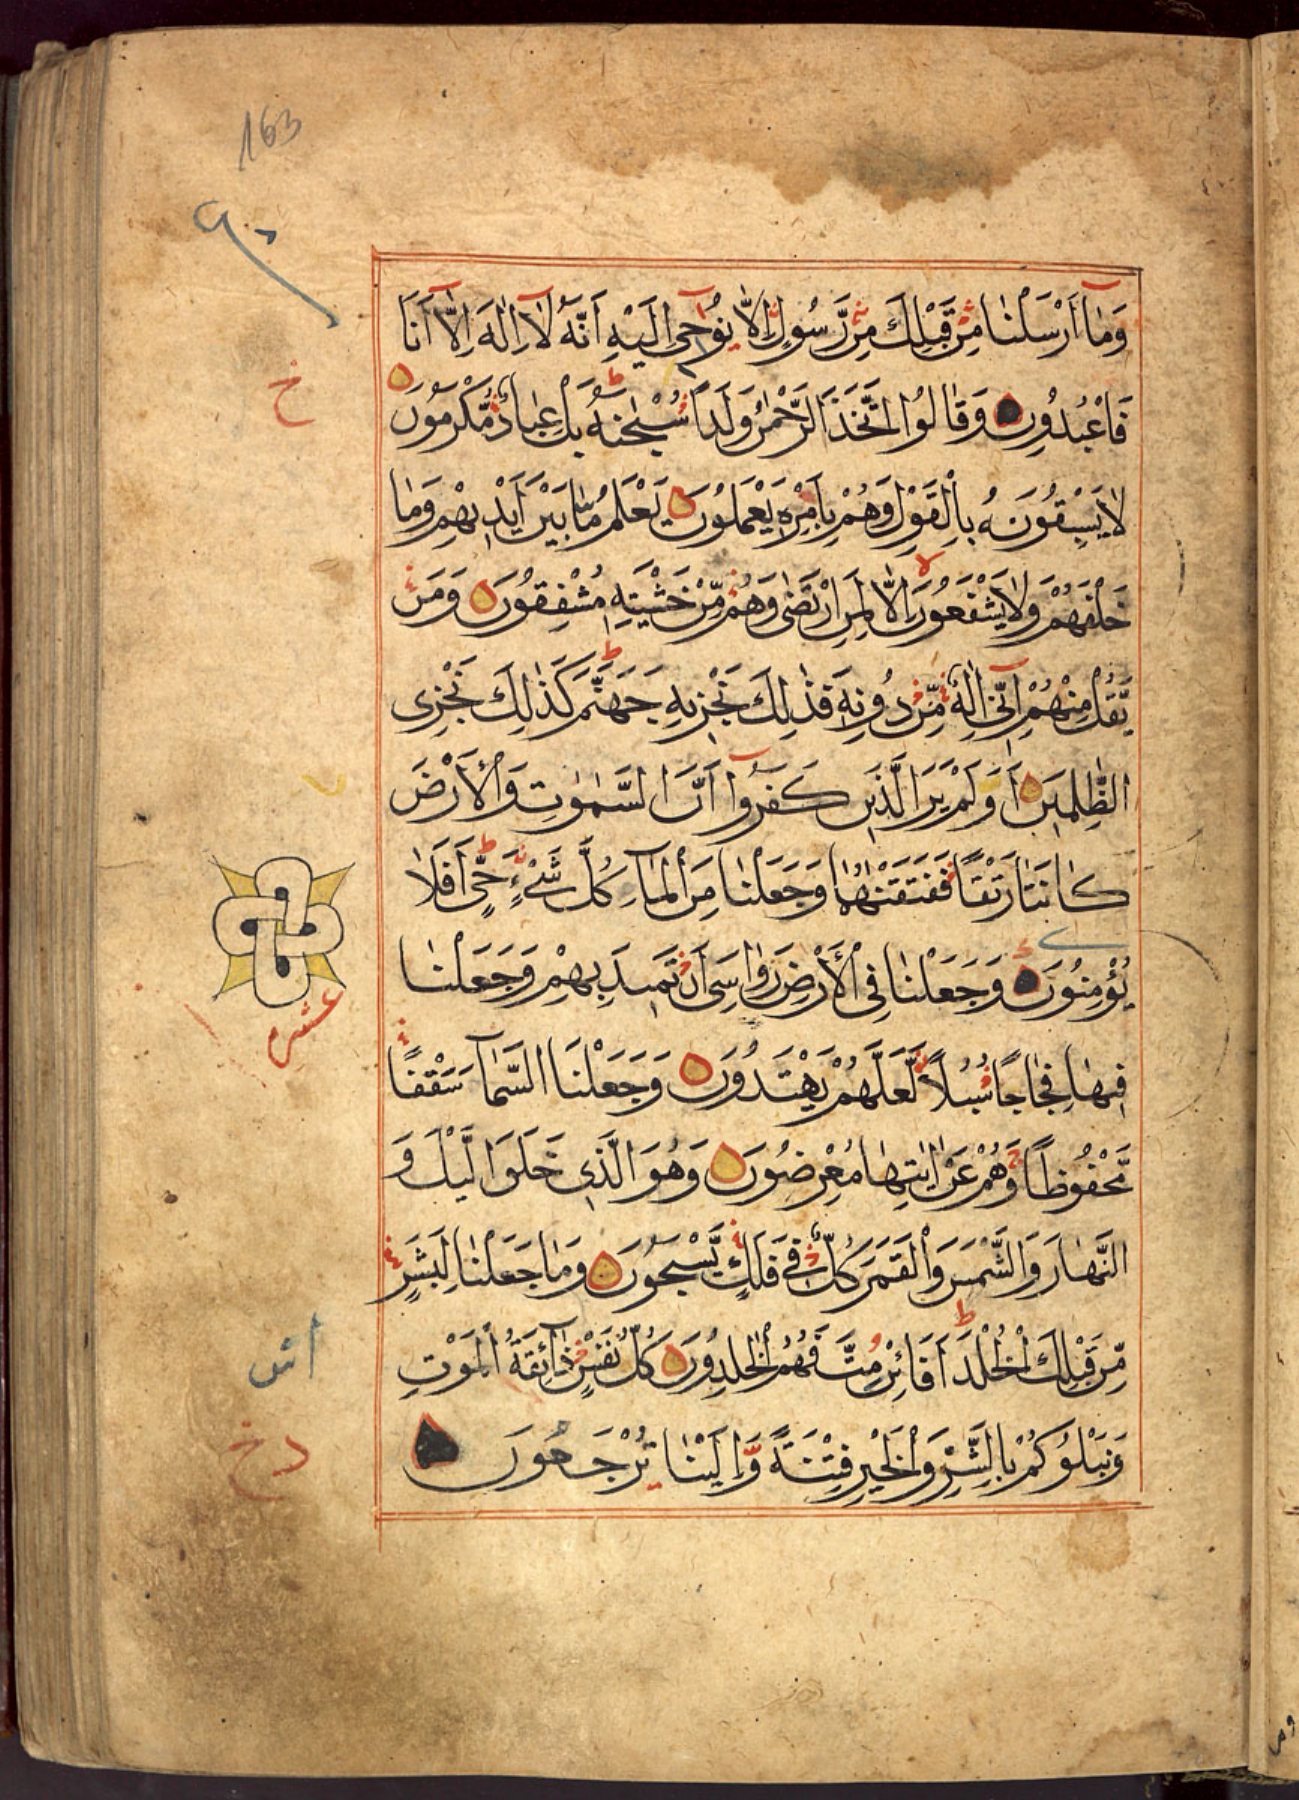 163
وَمَا أَرْسَلْنَا مِنْ قَبْلِكَ مِنْ رَّسُولٍ اِلَّا يُوحٰى اِلَيْهِ اَنَّهُ لَا اِلٰهَ اِلَّا اَنَا
فَاعْبُدُونِ وَقَالُوا اتَّخَذَ الرَّحْمٰنُ وَلَدًا سُبْحٰنَهُ بَلْ عِبَادٌ مُّكْرَمُونَ
لَا يَسْبِقُونَهُ بِالْقَوْلِ وَهُمْ بِاَمْرِهِ يَعْمَلُونَ يَعْلَمُ مَا بَيْنَ اَيْدِيهِمْ وَمَا
خَلْفَهُمْ وَلَا يَشْفَعُونَ اِلَّا لِمَنِ ارْتَضٰى وَهُمْ مِّنْ خَشْيَتِهِ مُشْفِقُونَ وَمَنْ
يَّقُلْ مِنْهُمْ اِنِّى اِلٰهٌ مِّنْ دُونِهِ فَذٰلِكَ نَجْزِيهِ جَهَنَّمَ كَذٰلِكَ نَجْزِى
الظّٰلِمِينَ اَوَلَمْ يَرَ الَّذِينَ كَفَرُوا اَنَّ السَّمٰوٰتِ وَالْاَرْضَ
كَانَتَا رَتْقًا فَفَتَقْنٰهُمَا وَجَعَلْنَا مِنَ الْمَاءِ كُلَّ شَىْءٍ حَىٍّ اَفَلَا
يُؤْمِنُونَ وَجَعَلْنَا فِى الْاَرْضِ رَوَاسِىَ اَنْ تَمِيدَ بِهِمْ وَجَعَلْنَا
فِيهَا فِجَاجًا سُبُلًا لَّعَلَّهُمْ يَهْتَدُونَ وَجَعَلْنَا السَّمَاءَ سَقْفًا
مَّحْفُوظًا وَّهُمْ عَنْ اٰيٰتِهَا مُعْرِضُونَ وَهُوَ الَّذِى خَلَقَ الَّيْلَ وَ
النَّهَارَ وَالشَّمْسَ وَالْقَمَرَ كُلٌّ فِى فَلَكٍ يَّسْبَحُونَ وَمَا جَعَلْنَا لِبَشَرٍ
مِّنْ قَبْلِكَ الْخُلْدَ اَفَائِنْ مِّتَّ فَهُمُ الْخٰلِدُونَ كُلُّ نَفْسٍ ذَائِقَةُ الْمَوْتِ
وَنَبْلُوكُمْ بِالشَّرِّ وَالْخَيْرِ فِتْنَةً وَّاِلَيْنَا تُرْجَعُونَ
خ
عشر